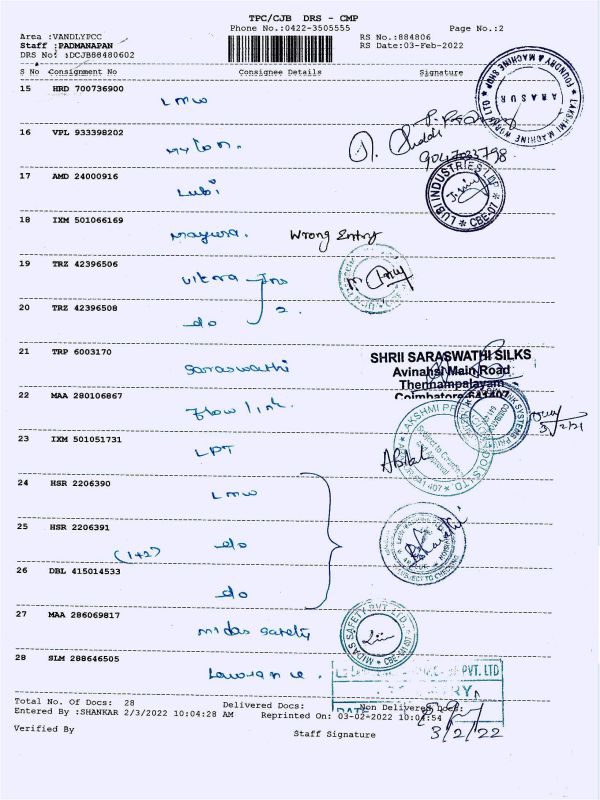 TPC/CJB DRS - CMP
Phone No.:0422-3505555 Page No.:2
Area :VANDLYPCC RS No.:884806
Staff :PADMANAPAN RS Date:03-Feb-2022
DRS No: :DCJB88480602
S No Consignment No Consignee Details Signature
15 HRD 700736900
LMW
LAKSHMI MACHINE WORKS LTD FOUNDRY & MACHINE SHOP
ARASUR
16 VPL 933398202
17 AMD 24000916
Lubi
LUBI INDUSTRIES LLP CBE-07
18 IXM 501066169
Mayura. Wrong Entry
19 TRZ 42396506
20 TRZ 42396508
do 2.
21 TRP 6003170
Saraswathi
SHRII SARASWATHI SILKS
Avinahsi Main Road
Thennampalayam
Coimbatore-641407
22 MAA 280106867
Flow link.
23 IXM 501051731
LPT
24 HSR 2206390
LMW
25 HSR 2206391
(1+2) do
26 DBL 415014533
do
SUBJECT TO CHECKING
27 MAA 286069817
Midas Safety
MIDAS SAFETY PVT. LTD.
28 SLM 288646505
PVT. LTD
DATE
Total No. Of Docs: 28 Delivered Docs: Non Delivered Docs:
Entered By :SHANKAR 2/3/2022 10:04:28 AM Reprinted On: 03-02-2022 10:04:54
3/2/22
Verified By Staff Signature